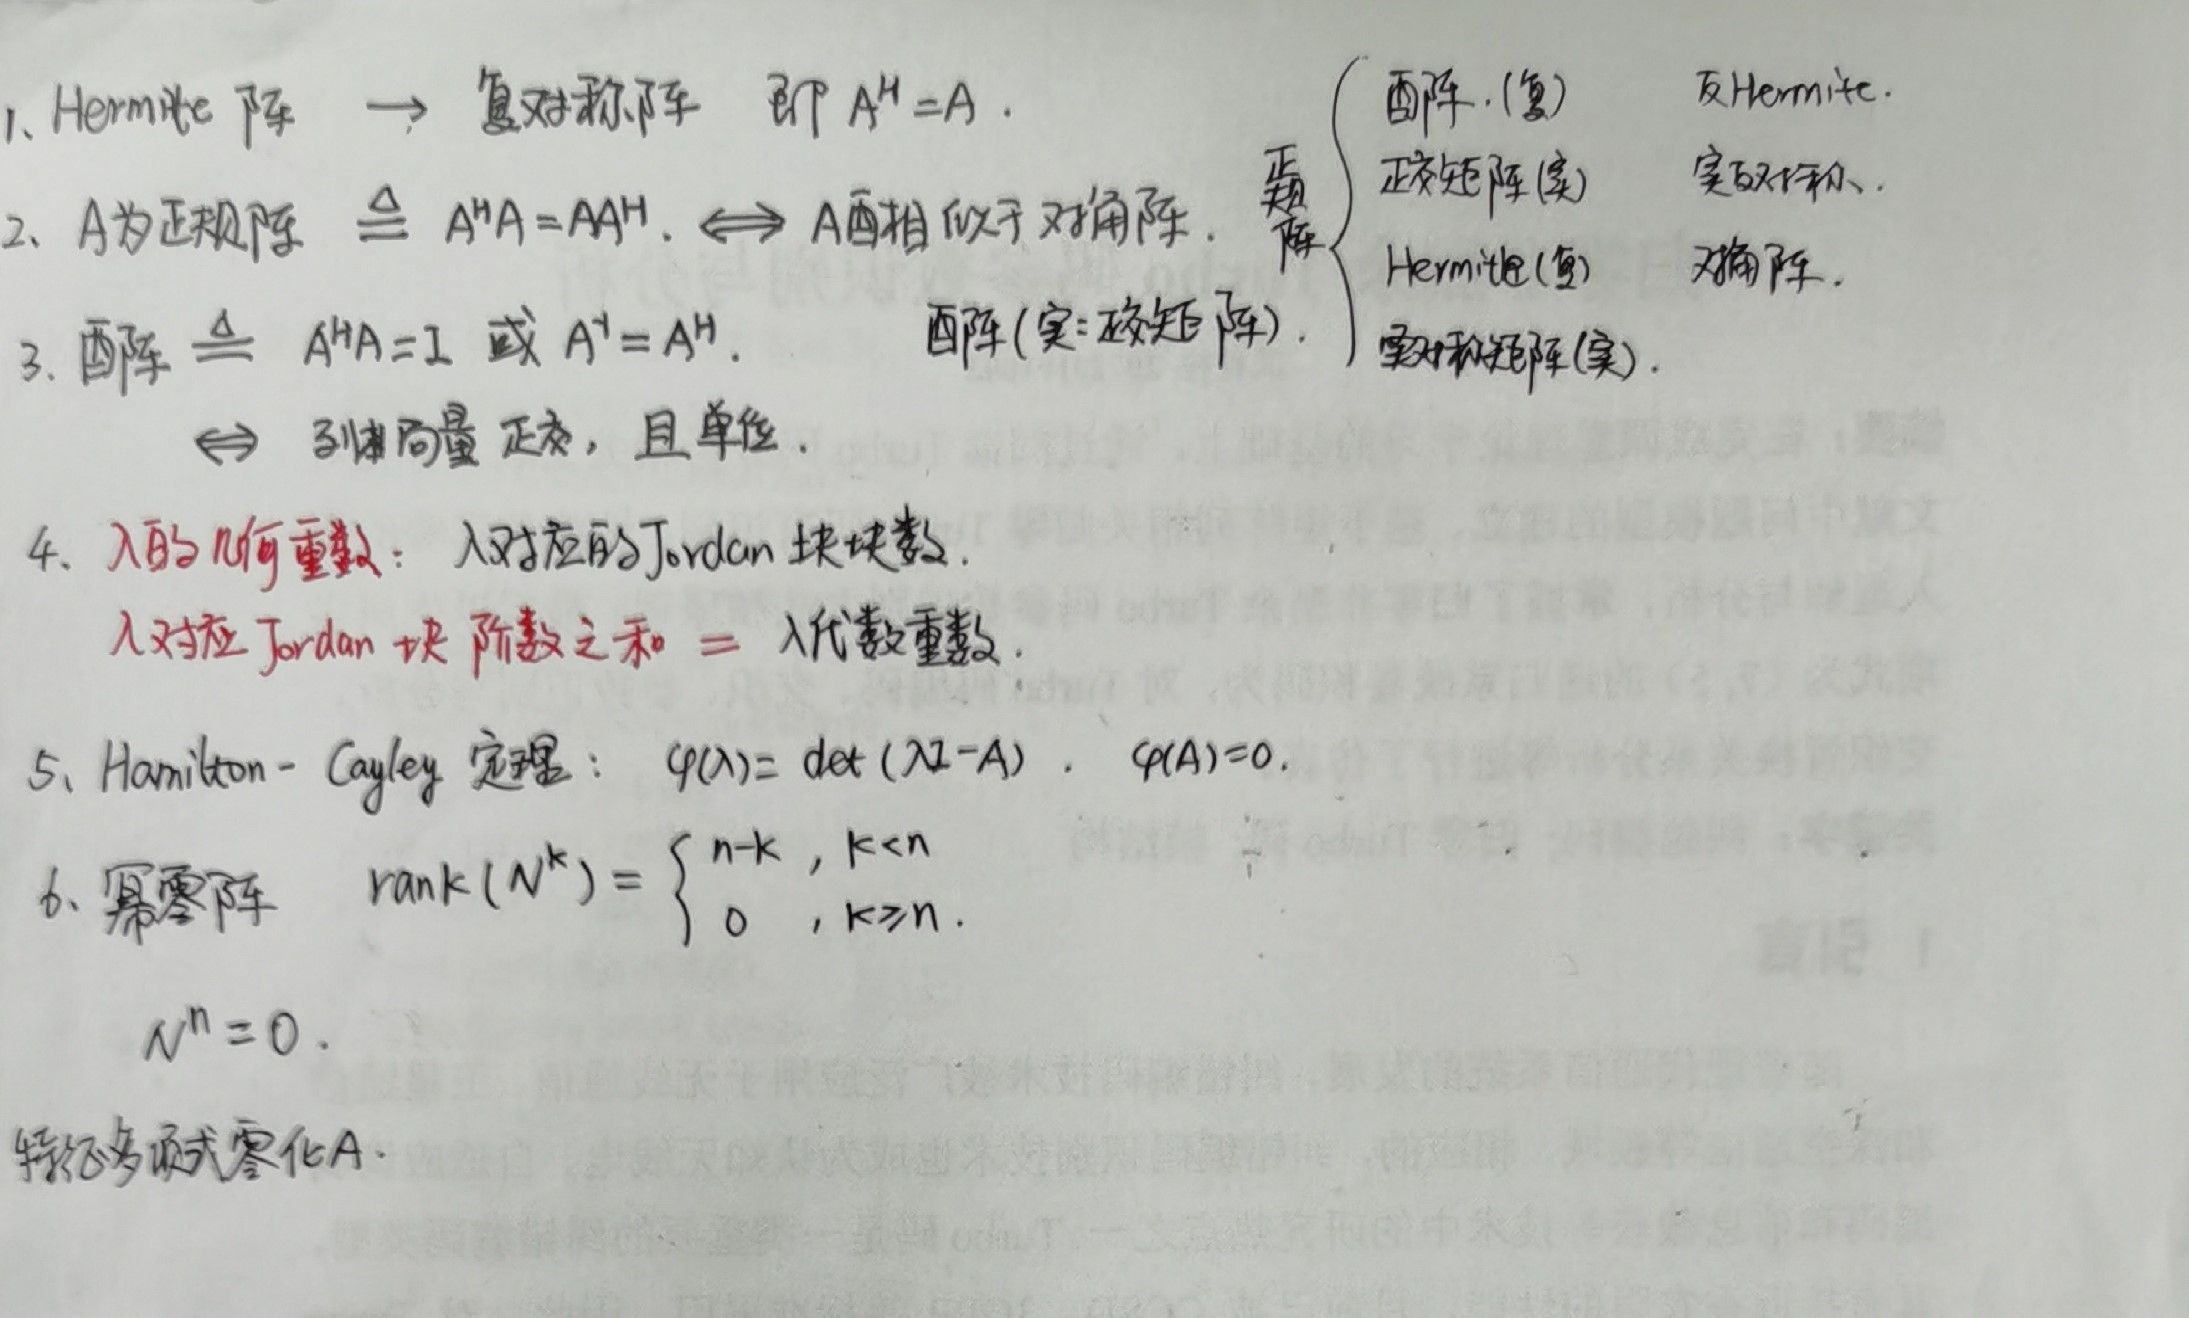 1、Hermite 阵 → 复对称阵 即 Aᴴ=A.
2、A为正规阵 ≜ AᴴA=AAᴴ. ⟺ A酉相似于对角阵.
正规阵 {
酉阵.(复) 反Hermite.
正交矩阵(实) 实反对称、.
Hermite(复) 对角阵.
实对称矩阵(实).
3. 酉阵 ≜ AᴴA=I 或 A⁻¹=Aᴴ. 酉阵(实:正交矩阵).
⟺ 列向量正交，且单位.
4、λ的几何重数： λ对应的Jordan 块块数.
λ对应Jordan 块 阶数之和 = λ代数重数.
5、Hamilton- Cayley 定理： φ(λ)= det (λI-A) . φ(A)=0.
6、幂零阵 rank(Nᵏ)= { n-k , k<n
0 , k≥n.
Nⁿ=0.
特征多项式零化A.